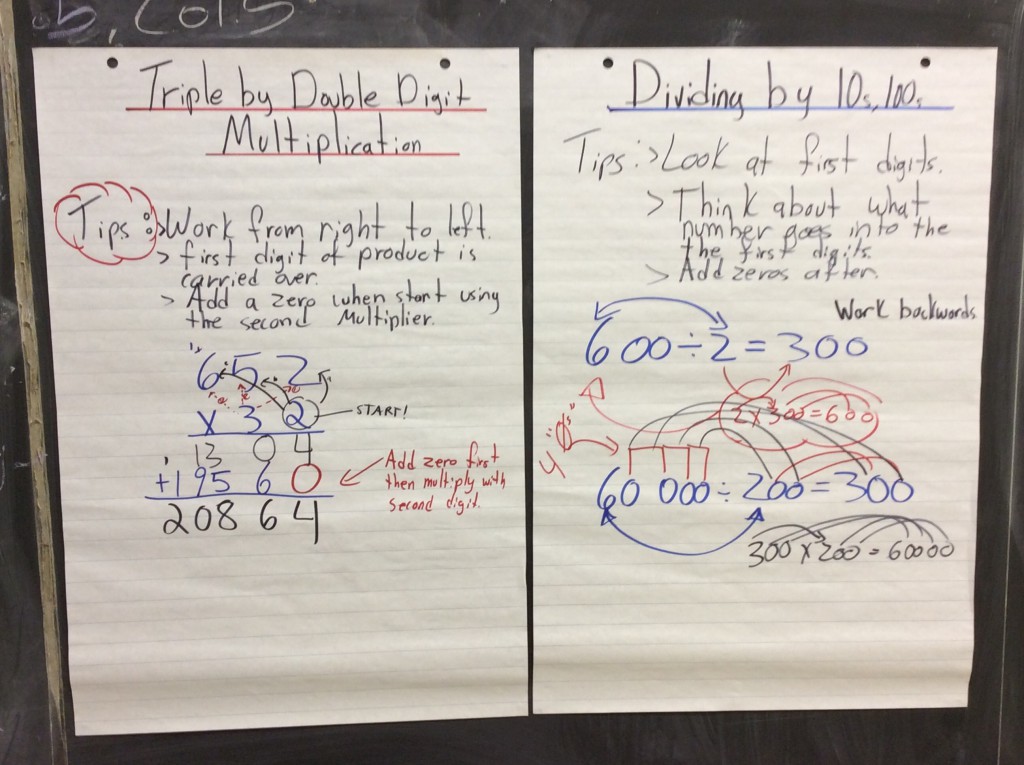 Triple by Double Digit
Multiplication
Tips: > Work from right to left.
> first digit of product is
carried over.
> Add a zero when start using
the second Multiplier.
652
x 32
START!
13 0 4
+195 6 0
20864
Add zero first
then multiply with
second digit.
Dividing by 10s, 100s
Tips: > Look at first digits.
> Think about what
number goes into the
the first digits.
> Add zeros after.
Work backwards
600 ÷ 2 = 300
2 x 300 = 600
4 "0s"
60 000 ÷ 200 = 300
300 x 200 = 60000